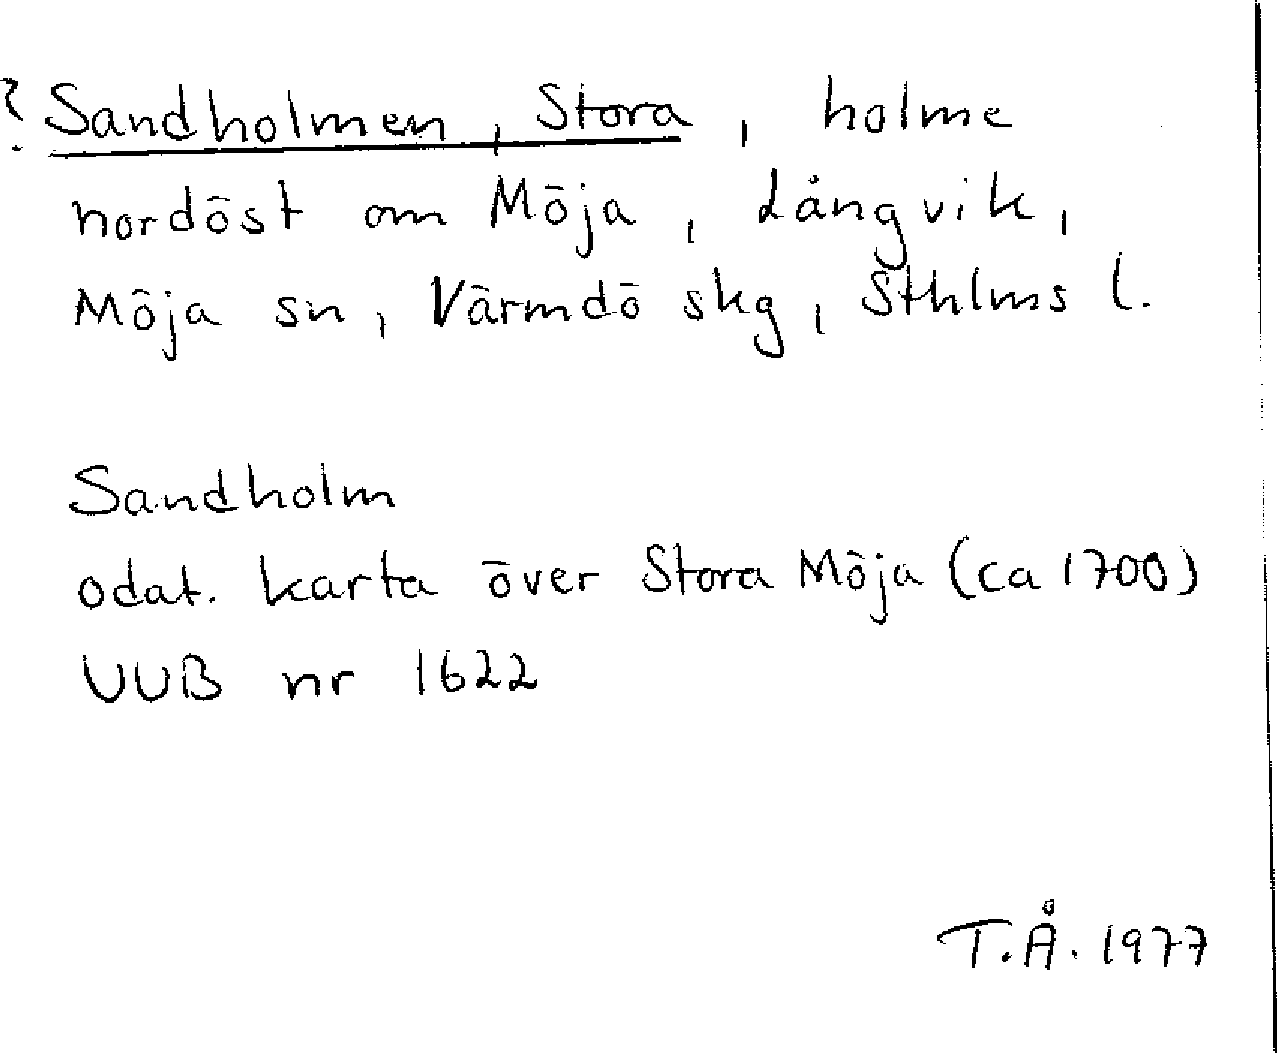 ? Sandholmen, Stora, holme
nordöst om Möja, Långvik,
Möja sn, Värmdö skg, Sthlms l.
Sandholm
odat. karta över Stora Möja (ca 1700)
UUB nr 1622
T.Å. 1977